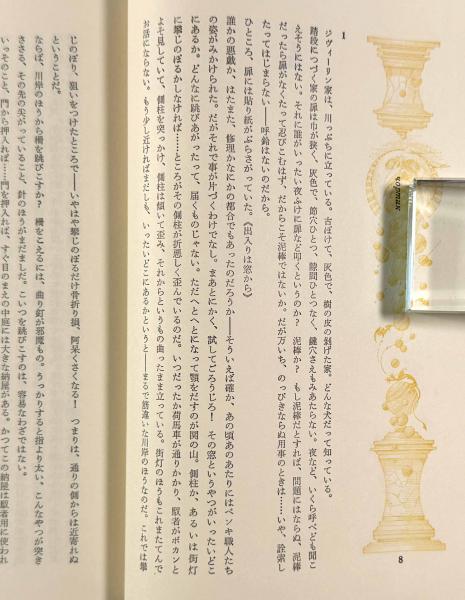 1
ジヴィーリン家は、川っぷちに立っている。古ぼけて、灰色で、樹の皮の剥げた家。どんな犬だって知っている。
階段につづく家の扉は巾が狭く、灰色で、節穴ひとつ、隙間ひとつなく、鍵穴さえもみあたらない。夜など、いくら呼べども聞こ
えそうにはない。それに誰がいったい夜ふけに扉など叩くというのか? 泥棒か? もし泥棒だとすれば、問題にはならぬ、泥棒
だったら扉がなくたって忍びこむはず、だからこそ泥棒ではないか。だが万いち、のっぴきならぬ用事のときは……いや、詮索し
たってはじまらない——呼鈴はないのだから。
ひところ、扉には貼り紙がぶらさがっていた。《出入りは窓から》
誰かの悪戯か、はたまた、修理かなにかの都合でもあったのだろうか——そういえば確か、あの頃あのあたりにはペンキ職人たち
の姿がみかけられた。だがそれで事が片づくわけでなし。まあとにかく、試してごろうじろ! その窓というやつがいったいどこ
にあるか。どんなに跳びあがったって、届くものじゃない。ただへとへとになって顎をだすのが関の山。側柱か、あるいは街灯
に攀じのぼるかしなければ……ところがその側柱が折悪しく歪んでいるのだ。いつだったか荷馬車が通りかかり、馭者がポカンと
よそ見していて、側柱を突っかけ、側柱は傾いて歪み、それからというもの曲ったまま立っている。街灯のほうもこれまたてんで
お話にならない。もう少し近ければまだしも、いったいどこにあるかというと——まるで筋違いな川岸のほうなのだ。これでは攀
8
じのぼり、狙いをつけたところで——いやはや攀じのぼるだけ骨折り損、阿呆くさくなる! つまりは、通りの側からは近寄れぬ
ということだ。
ならば、川岸のほうから柵を跳びこすか? 柵をこえるには、曲り釘が邪魔もの。うっかりすると指より太い、こんなやつが突き
ささる、その先の尖っていること、針のほうがまだましだ。こいつを跳びこすのは、容易なわざではない。
いっそのこと、門から押入れば……門を押入れば、すぐ目のまえの中庭には大きな納屋がある。かつてこの納屋は馭者用に使われ